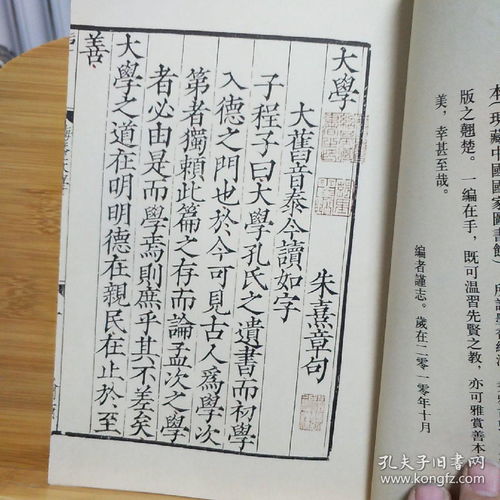 本（現藏中國國家圖書館）
版之翹楚。一編在手，既可温習先賢之教，亦可雅賞善本
美，幸甚至哉。
編者謹志。歲在二〇一〇年十月
大學
朱熹章句
大舊音泰今讀如字
子程子曰大學孔氏之遺書而初學
入德之門也於今可見古人爲學次
第者獨賴此篇之存而論孟次之學
者必由是而學焉則庶乎其不差矣
大學之道在明明德在親民在止於至
善
孔夫子旧书网
www.kongfz.com